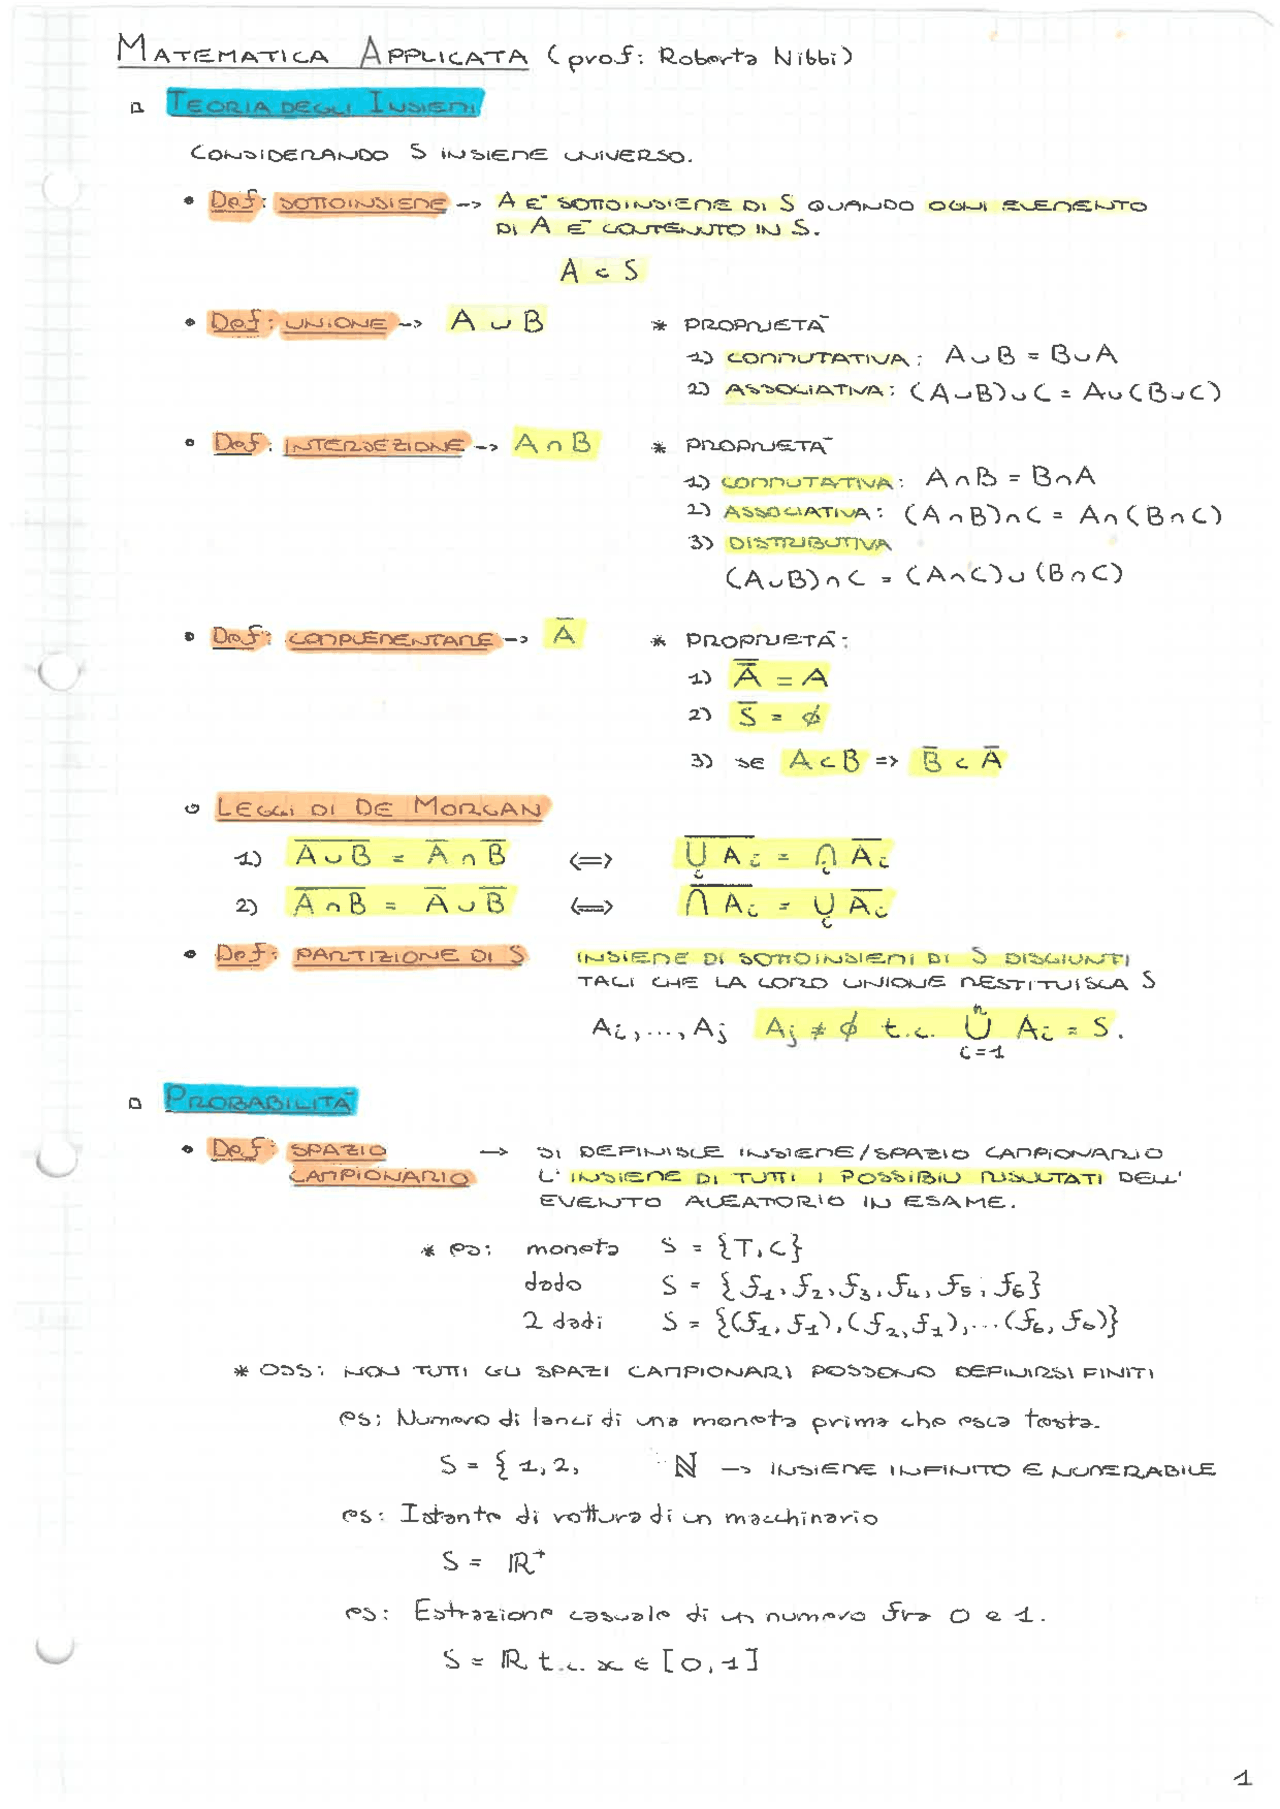 MATEMATICA APPLICATA (prof: Roberta Nibbi)
TEORIA DEGLI INSIEMI
CONSIDERANDO S INSIEME UNIVERSO.
• Def: SOTTOINSIEME -> A È SOTTOINSIEME DI S QUANDO OGNI ELEMENTO
DI A È CONTENUTO IN S.
A ⊂ S
• Def: UNIONE -> A ∪ B * PROPRIETÀ
1) COMMUTATIVA: A∪B = B∪A
2) ASSOCIATIVA: (A∪B)∪C = A∪(B∪C)
• Def: INTERSEZIONE -> A ∩ B * PROPRIETÀ
1) COMMUTATIVA: A∩B = B∩A
2) ASSOCIATIVA: (A∩B)∩C = A∩(B∩C)
3) DISTRIBUTIVA
(A∪B)∩C = (A∩C)∪(B∩C)
• Def: COMPLEMENTARE -> A̅ * PROPRIETÀ:
1) A̿ = A
2) S̅ = ∅
3) SE A⊂B => B̅ ⊂ A̅
• LEGGI DI DE MORGAN
1) \overline{A∪B} = A̅ ∩ B̅ <=> \overline{⋃_i A_i} = ⋂_i \overline{A_i}
2) \overline{A∩B} = A̅ ∪ B̅ <=> \overline{⋂ A_i} = ⋃_i \overline{A_i}
• Def: PARTIZIONE DI S INSIEME DI SOTTOINSIEMI DI S DISGIUNTI
TALI CHE LA LORO UNIONE RESTITUISCA S
A_i, ..., A_j A_j ≠ ∅ t.c. ⋃_{i=1}^{n} A_i = S.
PROBABILITÀ
• Def: SPAZIO CAMPIONARIO -> SI DEFINISCE INSIEME/SPAZIO CAMPIONARIO
L'INSIEME DI TUTTI I POSSIBILI RISULTATI DELL'
EVENTO ALEATORIO IN ESAME.
* es: moneta S = {T, C}
dado S = {f₁, f₂, f₃, f₄, f₅, f₆}
2 dadi S = {(f₁, f₁), (f₂, f₁), ... (f₆, f₆)}
* OSS: NON TUTTI GLI SPAZI CAMPIONARI POSSONO DEFINIRSI FINITI
es: Numero di lanci di una moneta prima che esca testa.
S = {1, 2, ℕ -> INSIEME INFINITO E NUMERABILE
es: Istante di rottura di un macchinario
S = ℝ⁺
es: Estrazione casuale di un numero fra 0 e 1.
S = ℝ t.c. x ∈ [0, 1]
1